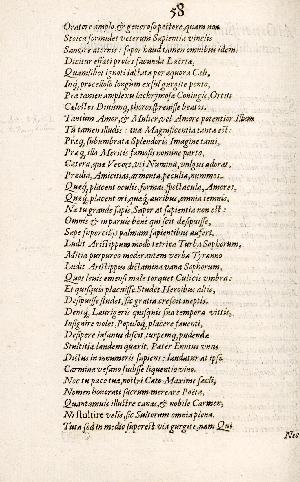 58
Oratore amplo, & generoso pectore, quam non
Stoica formidet veterum Sapientia vinclis
Sangire aternis: sapor haud tamen omnibus idem.
Dicitur effati proles facunda
Quamlibet ignoti iactata per aquora Cale,
Inq; procelloso longum exsul gurgite ponto,
Præ tamen amplexu lachrymosa Coniugis, Ortus
Celestes Divûmq; thoros sprevisse beatos.
Tantum Amor, & Mulier, vel Amore potentior
Tu tamen illudis: tua Magnificentia tanta est:
Præq; subumbrata Splendoris Imagine tanti,
Præq; illo Meritis famosis nomine parto,
Cetera, que Vecors, uti Numina, vulgus adorat,
Prædia, Amicitias, armenta, peculia, nummos,
Queq; placent oculis, formas, spectacula, Amores,
Queq; placent ori, quæq; auribus, omnia temnis,
Ne tu grande sapis, Sapor at sapientia non est:
Omnis & in parvis bene qui scit desipuisse,
Sæpe supercilijs palmam sapientibus aufert.
Ludit Aristippum modo tetrica Turba Sophorum,
Mitia purpureo moderantem verba Tyranno
Ludit Aristippus dictamina vana Sophorum,
Quos levis emensi male torquet Culicis umbra:
Et quisquis placuisse Studet Heroibus altis,
Desipuisse studet, sic gratia crescit ineptis.
Denique Laurigeris quisquis sua tempora vittis,
Insignire volet, Populoq; placere faventi,
Desipere insanus discit, turpemq; pudendæ
Stultitiæ laudem quærit. Pater Ennius unus
Dictus in innumeris sapiens: laudatur at ipse
Carmina vesano fudisse liquentia vino.
Nec tu pace tua, nostri Cato Maxime sæcli,
Nomen honorati sacrum mereare Poetæ,
Quantamvis illustre canas, & nobile Carmen,
Ni stultire velis, sic Stultorum omnia plena.
Tuta sed in medio superest via gurgite, nam Qui
Nec